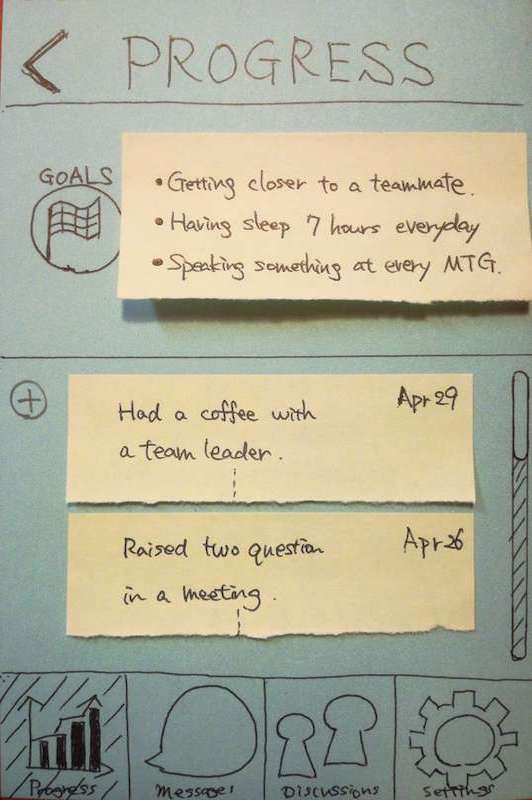 PROGRESS
GOALS
• Getting closer to a teammate.
• Having sleep 7 hours everyday
• Speaking something at every MTG.
Apr 29
Had a coffee with
a team leader.
Apr 26
Raised two question
in a meeting.
Progress
Messages
Discussions
Settings